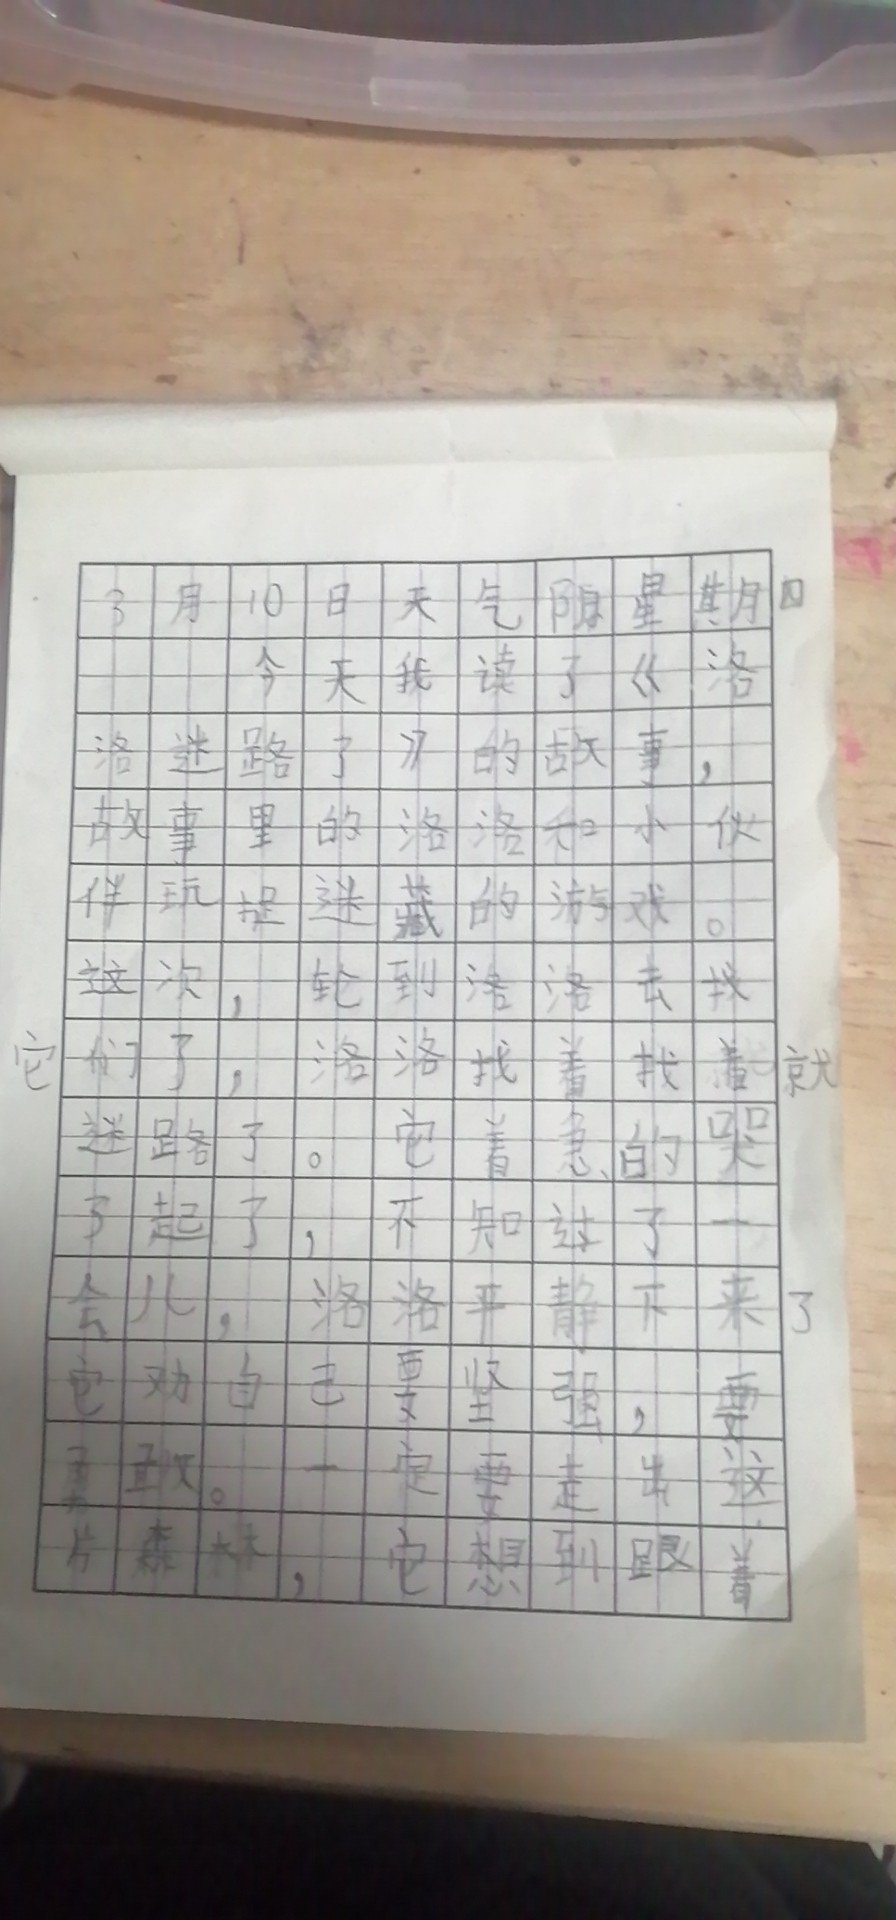 3月10日天气阴星期四
今天我读了《洛
洛迷路了》的故事,
故事里的洛洛和小伙
伴玩捉迷藏的游戏。
这次,轮到洛洛去找
它们了,洛洛找着找着就
迷路了。它着急的哭
了起了,不知过了一
会儿,洛洛平静下来了
它劝自己要坚强,要
勇敢。一定要走出这
片森林,它想到跟着